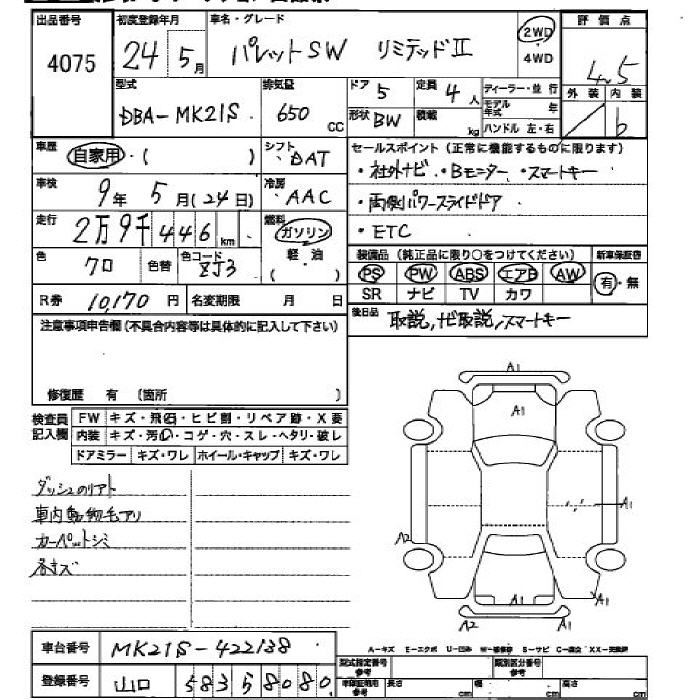 出品番号 初度登録年月 車名・グレード 2WD 4WD 評価点
4075 24年5月 パレットSW リミテッドⅡ 4.5
型式 排気量 ドア 5 定員 4人 ディーラー・並行 外装 内装
DBA-MK21S 650cc 形状 BW 積載 kg モデル年式 年 b
ハンドル 左・右
車歴 自家用・( ) シフト DAT セールスポイント(正常に機能するものに限ります)
車検 9年5月(24日) 冷房 AAC ・社外ナビ ・Bモニター ・スマートキー
走行 2万9千446km 燃料 ガソリン 軽油 ( ) ・両側パワースライドドア
・ETC
色 クロ 色替 色コード ZJ3 装備品(純正品に限り○をつけてください) 新車保証書
PS PW ABS エアB AW 有・無
SR ナビ TV カワ
R券 10,170円 名変期限 月 日 後日品 取説,ナビ取説,スマートキー
注意事項申告欄(不具合内容等は具体的に記入して下さい)
修復歴 有 (箇所 )
検査員記入欄 FW キズ・飛石・ヒビ割・リペア跡・X要
内装 キズ・汚れ・コゲ・穴・スレ・ヘタリ・破レ
ドアミラー キズ・ワレ ホイール・キャップ キズ・ワレ
A1
A1
ダッシュのリアト
車内動物毛アリ
カーペットシミ
各キズ
A1
A2
A1
A1
A2 A1
車台番号 MK21S-422138
A-キズ E-エクボ U-凹み W-補修跡 S-サビ C-腐食 XX-交換済
登録番号 山口 583 58080
型式指定番号 参考 類別区分番号 参考
車検証範囲 参考 長さ cm 幅 cm 高さ cm